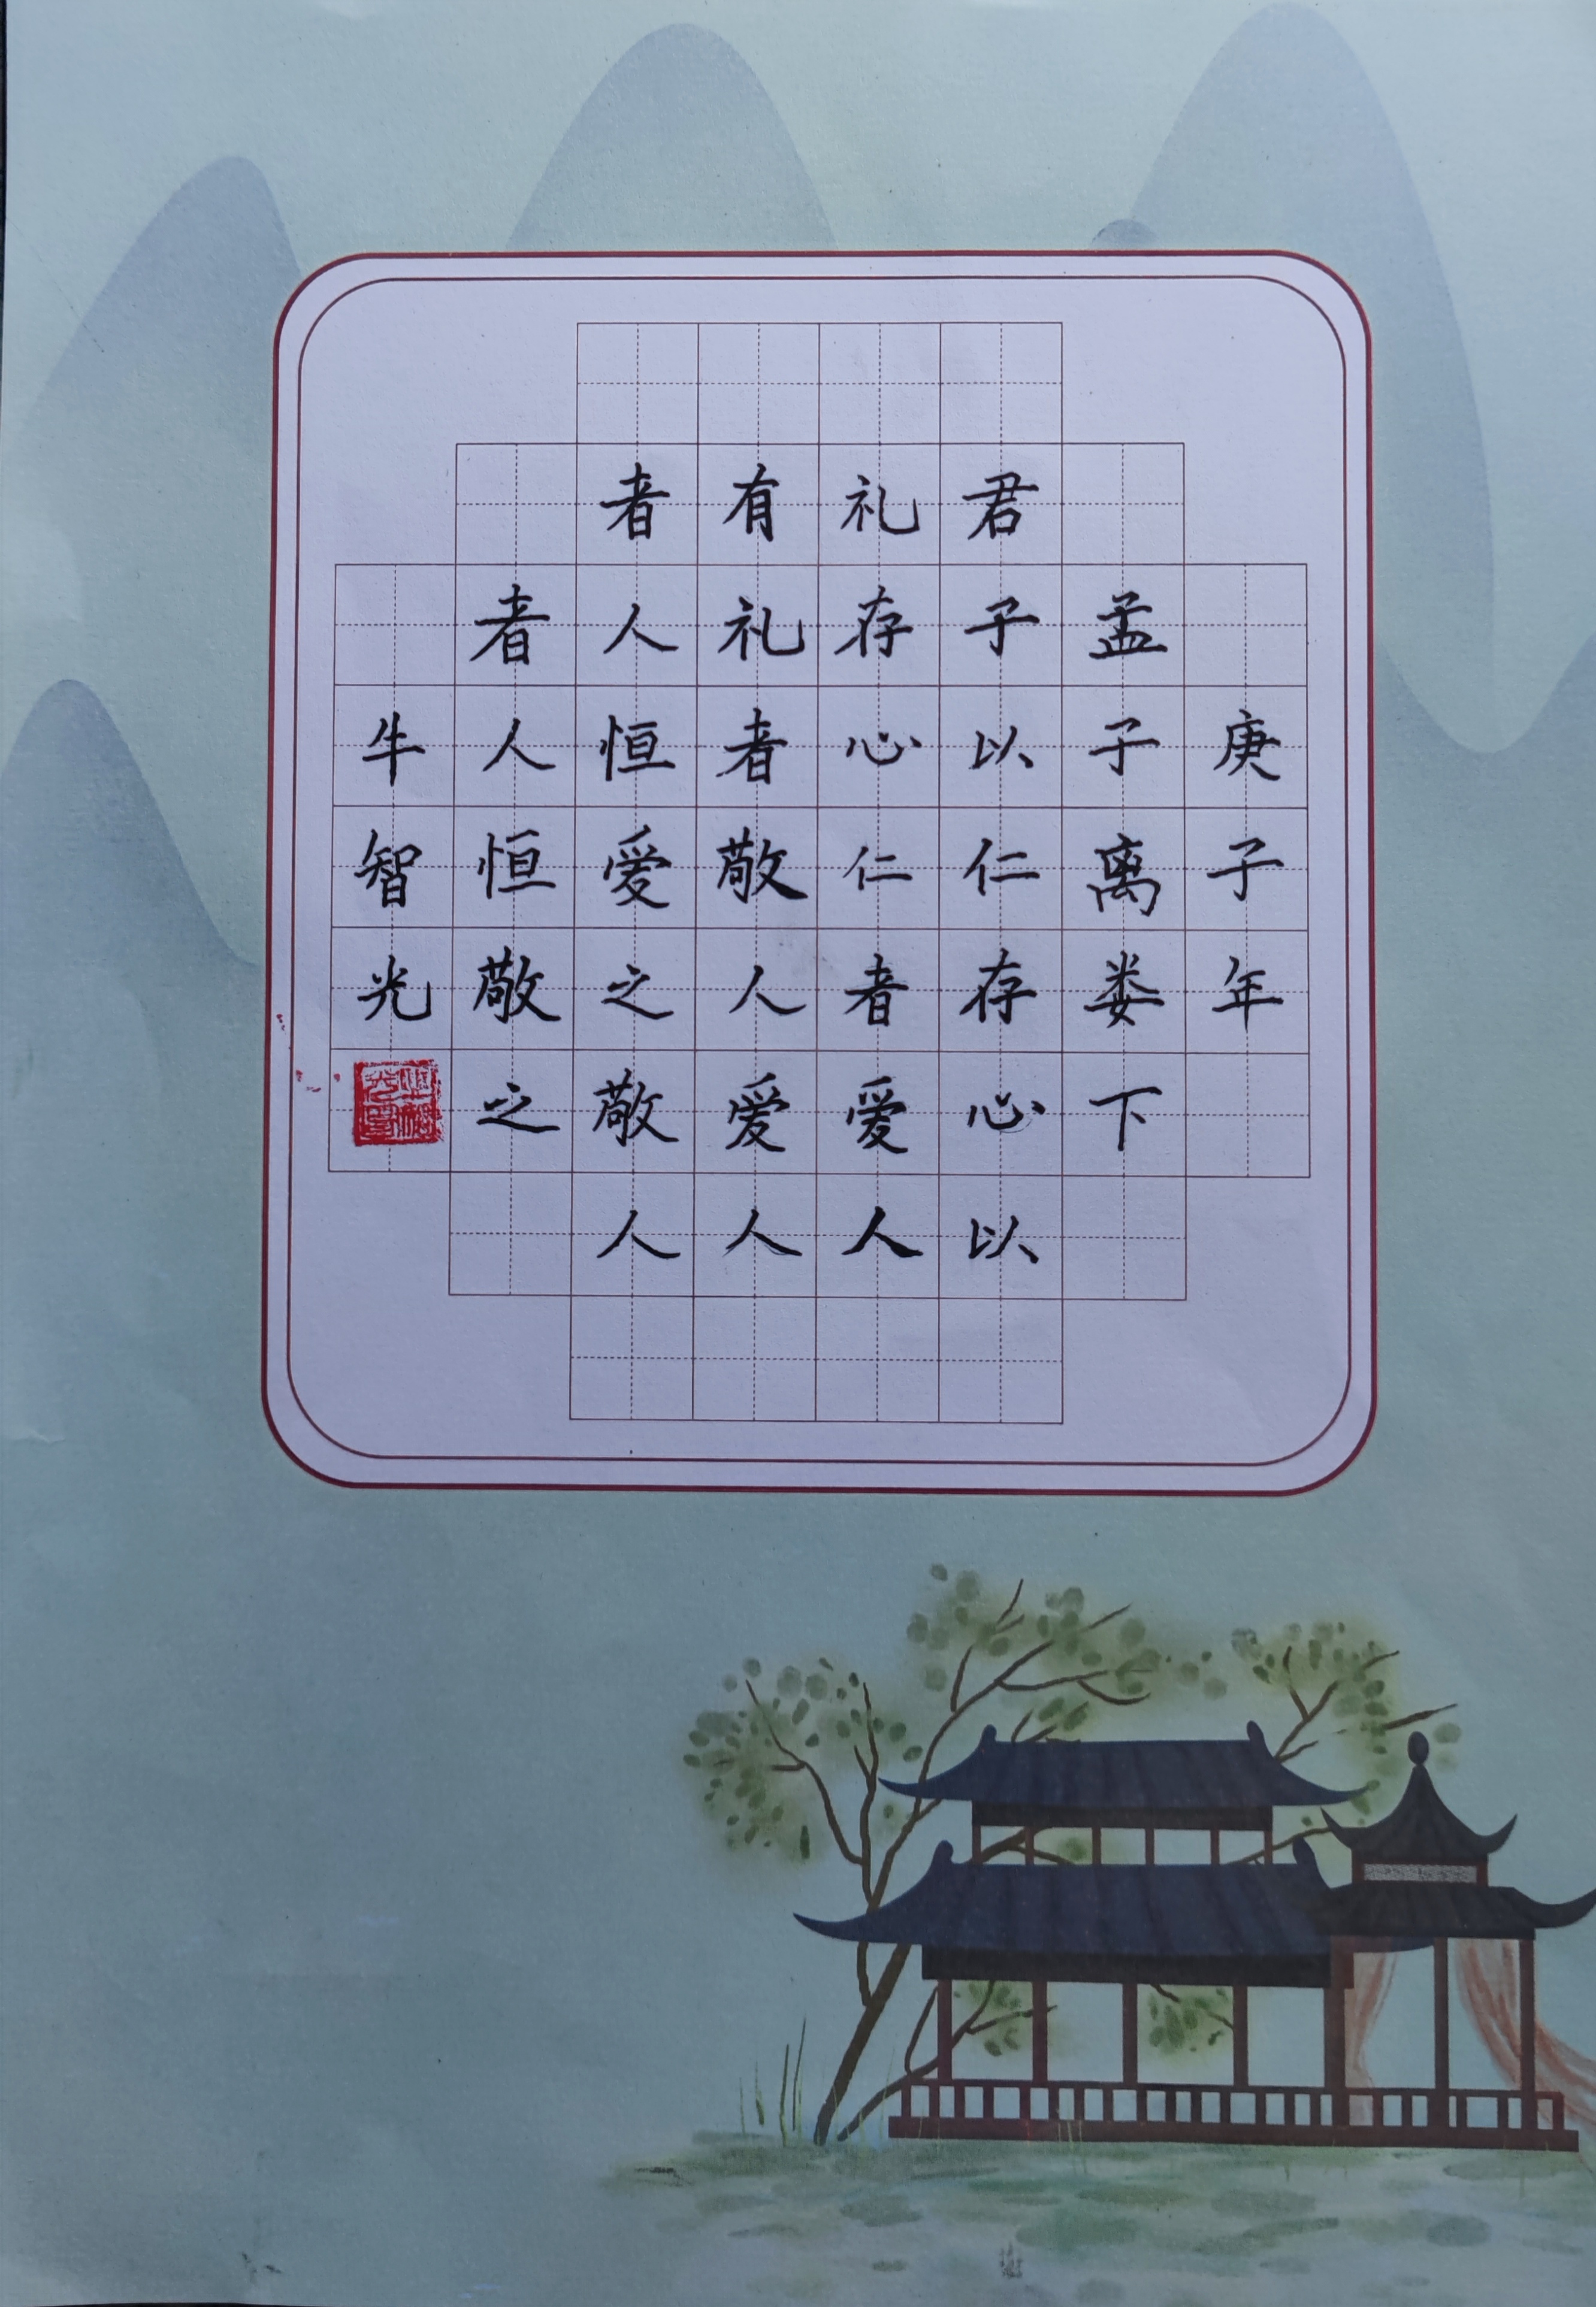 庚子年
孟子离娄下
君子以仁存心以
礼存心仁者爱人
有礼者敬人爱人
者人恒爱之敬人
者人恒敬之
牛智光